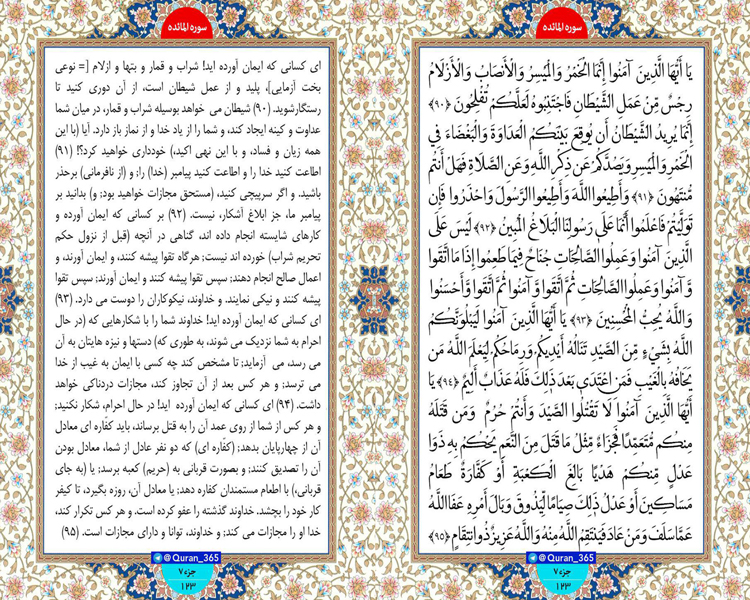 سوره المائده
يَا أَيُّهَا الَّذِينَ آمَنُوا إِنَّمَا الْخَمْرُ وَالْمَيْسِرُ وَالْأَنْصَابُ وَالْأَزْلَامُ
رِجْسٌ مِّنْ عَمَلِ الشَّيْطَانِ فَاجْتَنِبُوهُ لَعَلَّكُمْ تُفْلِحُونَ ﴿٩٠﴾
إِنَّمَا يُرِيدُ الشَّيْطَانُ أَن يُوقِعَ بَيْنَكُمُ الْعَدَاوَةَ وَالْبَغْضَاءَ فِي
الْخَمْرِ وَالْمَيْسِرِ وَيَصُدَّكُمْ عَن ذِكْرِ اللَّهِ وَعَنِ الصَّلَاةِ فَهَلْ أَنتُم
مُّنتَهُونَ ﴿٩١﴾ وَأَطِيعُوا اللَّهَ وَأَطِيعُوا الرَّسُولَ وَاحْذَرُوا فَإِن
تَوَلَّيْتُمْ فَاعْلَمُوا أَنَّمَا عَلَىٰ رَسُولِنَا الْبَلَاغُ الْمُبِينُ ﴿٩٢﴾ لَيْسَ عَلَى
الَّذِينَ آمَنُوا وَعَمِلُوا الصَّالِحَاتِ جُنَاحٌ فِيمَا طَعِمُوا إِذَا مَا اتَّقَوا
وَّآمَنُوا وَعَمِلُوا الصَّالِحَاتِ ثُمَّ اتَّقَوا وَّآمَنُوا ثُمَّ اتَّقَوا وَّأَحْسَنُوا
وَاللَّهُ يُحِبُّ الْمُحْسِنِينَ ﴿٩٣﴾ يَا أَيُّهَا الَّذِينَ آمَنُوا لَيَبْلُوَنَّكُمُ
اللَّهُ بِشَيْءٍ مِّنَ الصَّيْدِ تَنَالُهُ أَيْدِيكُمْ وَرِمَاحُكُمْ لِيَعْلَمَ اللَّهُ مَن
يَخَافُهُ بِالْغَيْبِ فَمَنِ اعْتَدَىٰ بَعْدَ ذَٰلِكَ فَلَهُ عَذَابٌ أَلِيمٌ ﴿٩٤﴾ يَا
أَيُّهَا الَّذِينَ آمَنُوا لَا تَقْتُلُوا الصَّيْدَ وَأَنتُمْ حُرُمٌ وَمَن قَتَلَهُ
مِنكُم مُّتَعَمِّدًا فَجَزَاءٌ مِّثْلُ مَا قَتَلَ مِنَ النَّعَمِ يَحْكُمُ بِهِ ذَوَا
عَدْلٍ مِّنكُمْ هَدْيًا بَالِغَ الْكَعْبَةِ أَوْ كَفَّارَةٌ طَعَامُ
مَسَاكِينَ أَوْ عَدْلُ ذَٰلِكَ صِيَامًا لِّيَذُوقَ وَبَالَ أَمْرِهِ عَفَا اللَّهُ
عَمَّا سَلَفَ وَمَنْ عَادَ فَيَنتَقِمُ اللَّهُ مِنْهُ وَاللَّهُ عَزِيزٌ ذُو انتِقَامٍ ﴿٩٥﴾
@Quran_365
جزء ٧
١٢٣
سوره المائده
ای کسانی که ایمان آورده اید! شراب و قمار و بتها و ازلام [= نوعی
بخت آزمایی]، پلید و از عمل شیطان است، از آن دوری کنید تا
رستگارشوید. (۹۰) شیطان می خواهد بوسیله شراب و قمار، در میان شما
عداوت و کینه ایجاد کند، و شما را از یاد خدا و از نماز باز دارد. آیا (با این
همه زیان و فساد، و با این نهی اکید،) خودداری خواهید کرد؟! (۹۱)
اطاعت کنید خدا را و اطاعت کنید پیامبر (خدا) را; و (از نافرمانی) برحذر
باشید. و اگر سرپیچی کنید، (مستحق مجازات خواهید بود; و) بدانید بر
پیامبر ما، جز ابلاغ آشکار، نیست. (۹۲) بر کسانی که ایمان آورده و
کارهای شایسته انجام داده اند، گناهی در آنچه (قبل از نزول حکم
تحریم شراب) خورده اند نیست; هرگاه تقوا پیشه کنند، و ایمان آورند، و
اعمال صالح انجام دهند; سپس تقوا پیشه کنند و ایمان آورند; سپس تقوا
پیشه کنند و نیکی نمایند. و خداوند، نیکوکاران را دوست می دارد. (۹۳)
ای کسانی که ایمان آورده اید! خداوند شما را با شکارهایی که (در حال
احرام به شما نزدیک می شوند، به طوری که) دستها و نیزه هایتان به آن
می رسد، می آزماید; تا مشخص کند چه کسی با ایمان به غیب از خدا
می ترسد; و هر کس بعد از آن تجاوز کند، مجازات دردناکی خواهد
داشت. (۹۴) ای کسانی که ایمان آورده اید! در حال احرام، شکار نکنید;
و هر کس از شما از روی عمد آن را به قتل برساند، باید کفّاره ای معادل
آن از چهارپایان بدهد; (کفّاره ای) که دو نفر عادل از شما، معادل بودن
آن را تصدیق کنند; و بصورت قربانی به (حریم) کعبه برسد; یا (به جای
قربانی،) با اطعام مستمندان کفاره دهد; یا معادل آن، روزه بگیرد، تا کیفر
کار خود را بچشد. خداوند گذشته را عفو کرده است. و هر کس تکرار کند،
خدا او را مجازات می کند; و خداوند، توانا و دارای مجازات است. (۹۵)
@Quran_365
جزء ٧
١٢٣